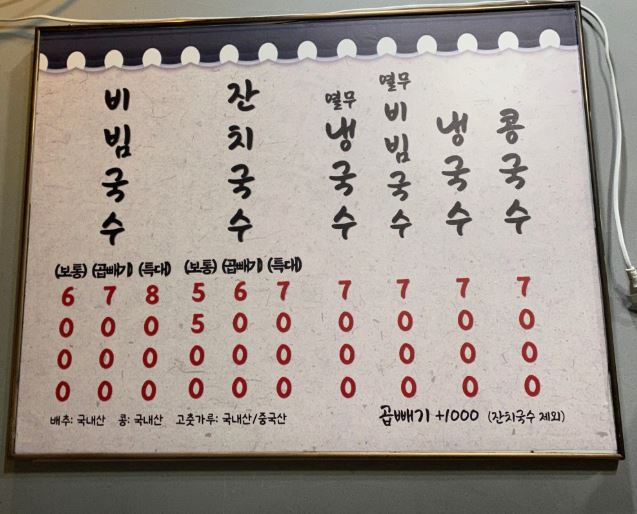 비빔국수
(보통) (곱빼기) (특대)
6000 7000 8000
잔치국수
(보통) (곱빼기) (특대)
5500 6000 7000
열무
냉국수
7000
열무
비빔국수
7000
냉국수
7000
콩국수
7000
배추: 국내산 콩: 국내산 고춧가루: 국내산/중국산
곱빼기 +1000 (잔치국수 제외)